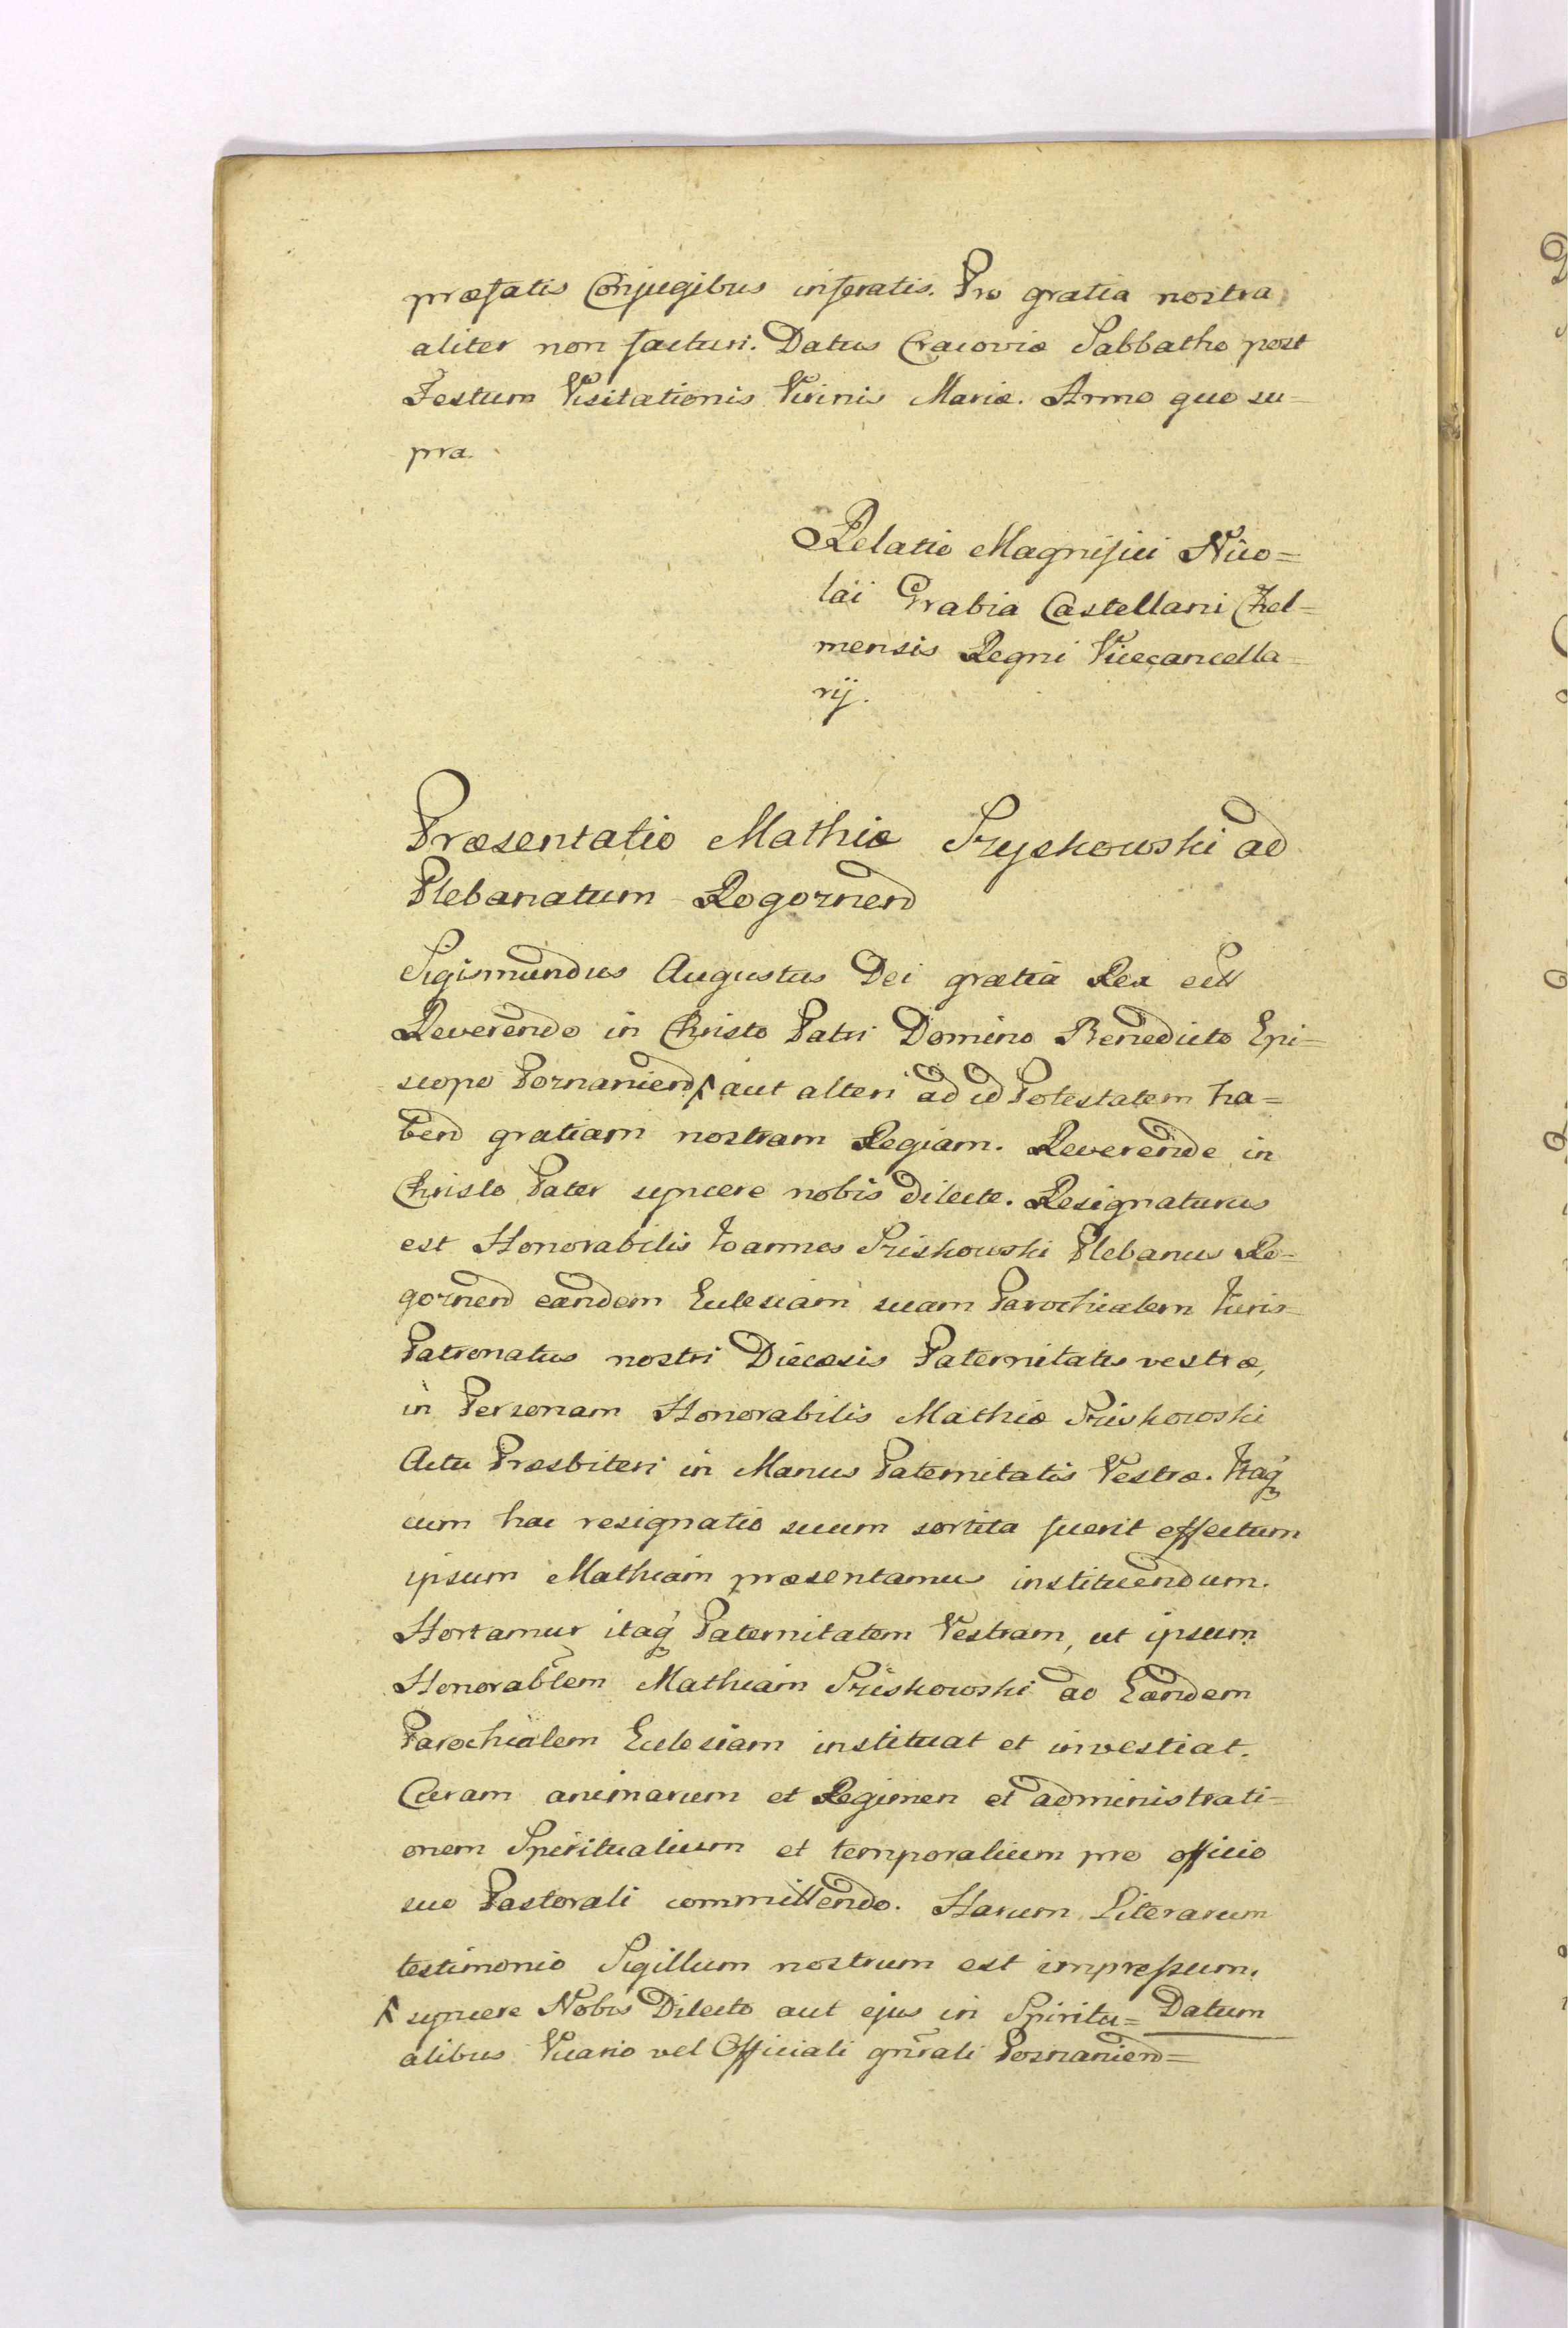 præfatis Conjugibus inferatis. Pro gratia nostra
aliter non facturi. Datus Cracoviæ Sabbatho post
Festum Visitationis Virinis Mariæ. Anno quo su=
pra.
Relatio Magnifici Nico=
lai Grabia Castellani Chel=
mensis Regni Vicecancella=
rij.
Præsentatio Mathiæ Szyskowski ad
Plebanatum Rogoznen
Sigismundus Augustus Dei gratia Rex ett
Reverendo in Christo Patri Domino Benedicto Epi=
scopo Poznanien aut alteri ad id Potestatem ha=
ben gratiam nostram Regiam. Reverende in
Christo Pater syncere nobis dilecte. Resignaturus
est Honorabilis Joannes Sziskowski Plebanus Ro=
goznen eandem Eclesiam suam Parochialem Juris=
Patronatus nostri Diæcesis Paternitatis vestræ,
in Personam Honorabilis Mathiæ Sziskowski
Actu Præsbiteri in Manus Paternitatis Vestræ. Itaq
cum hac resignatio suum sortita fuerit effectum
ipsum Mathiam præsentamus instituendum.
Hortamur itaq Paternitatem Vestram, ut ipsum
Honorablem Mathiam Sziskowski ad Eandem
Parochialem Eclesiam instituat et investiat.
Curam animarum et Regimen et administrati=
onem Spiritualium et temporalium pro officio
suo Pastorali committendo. Harum Literarum
testimonio Sigillum nostrum est impressum.
syncere Nobis Dilecto aut ejus in Spiritu= Datum
alibus Vicario vel Officiali gnrali Posnanien=